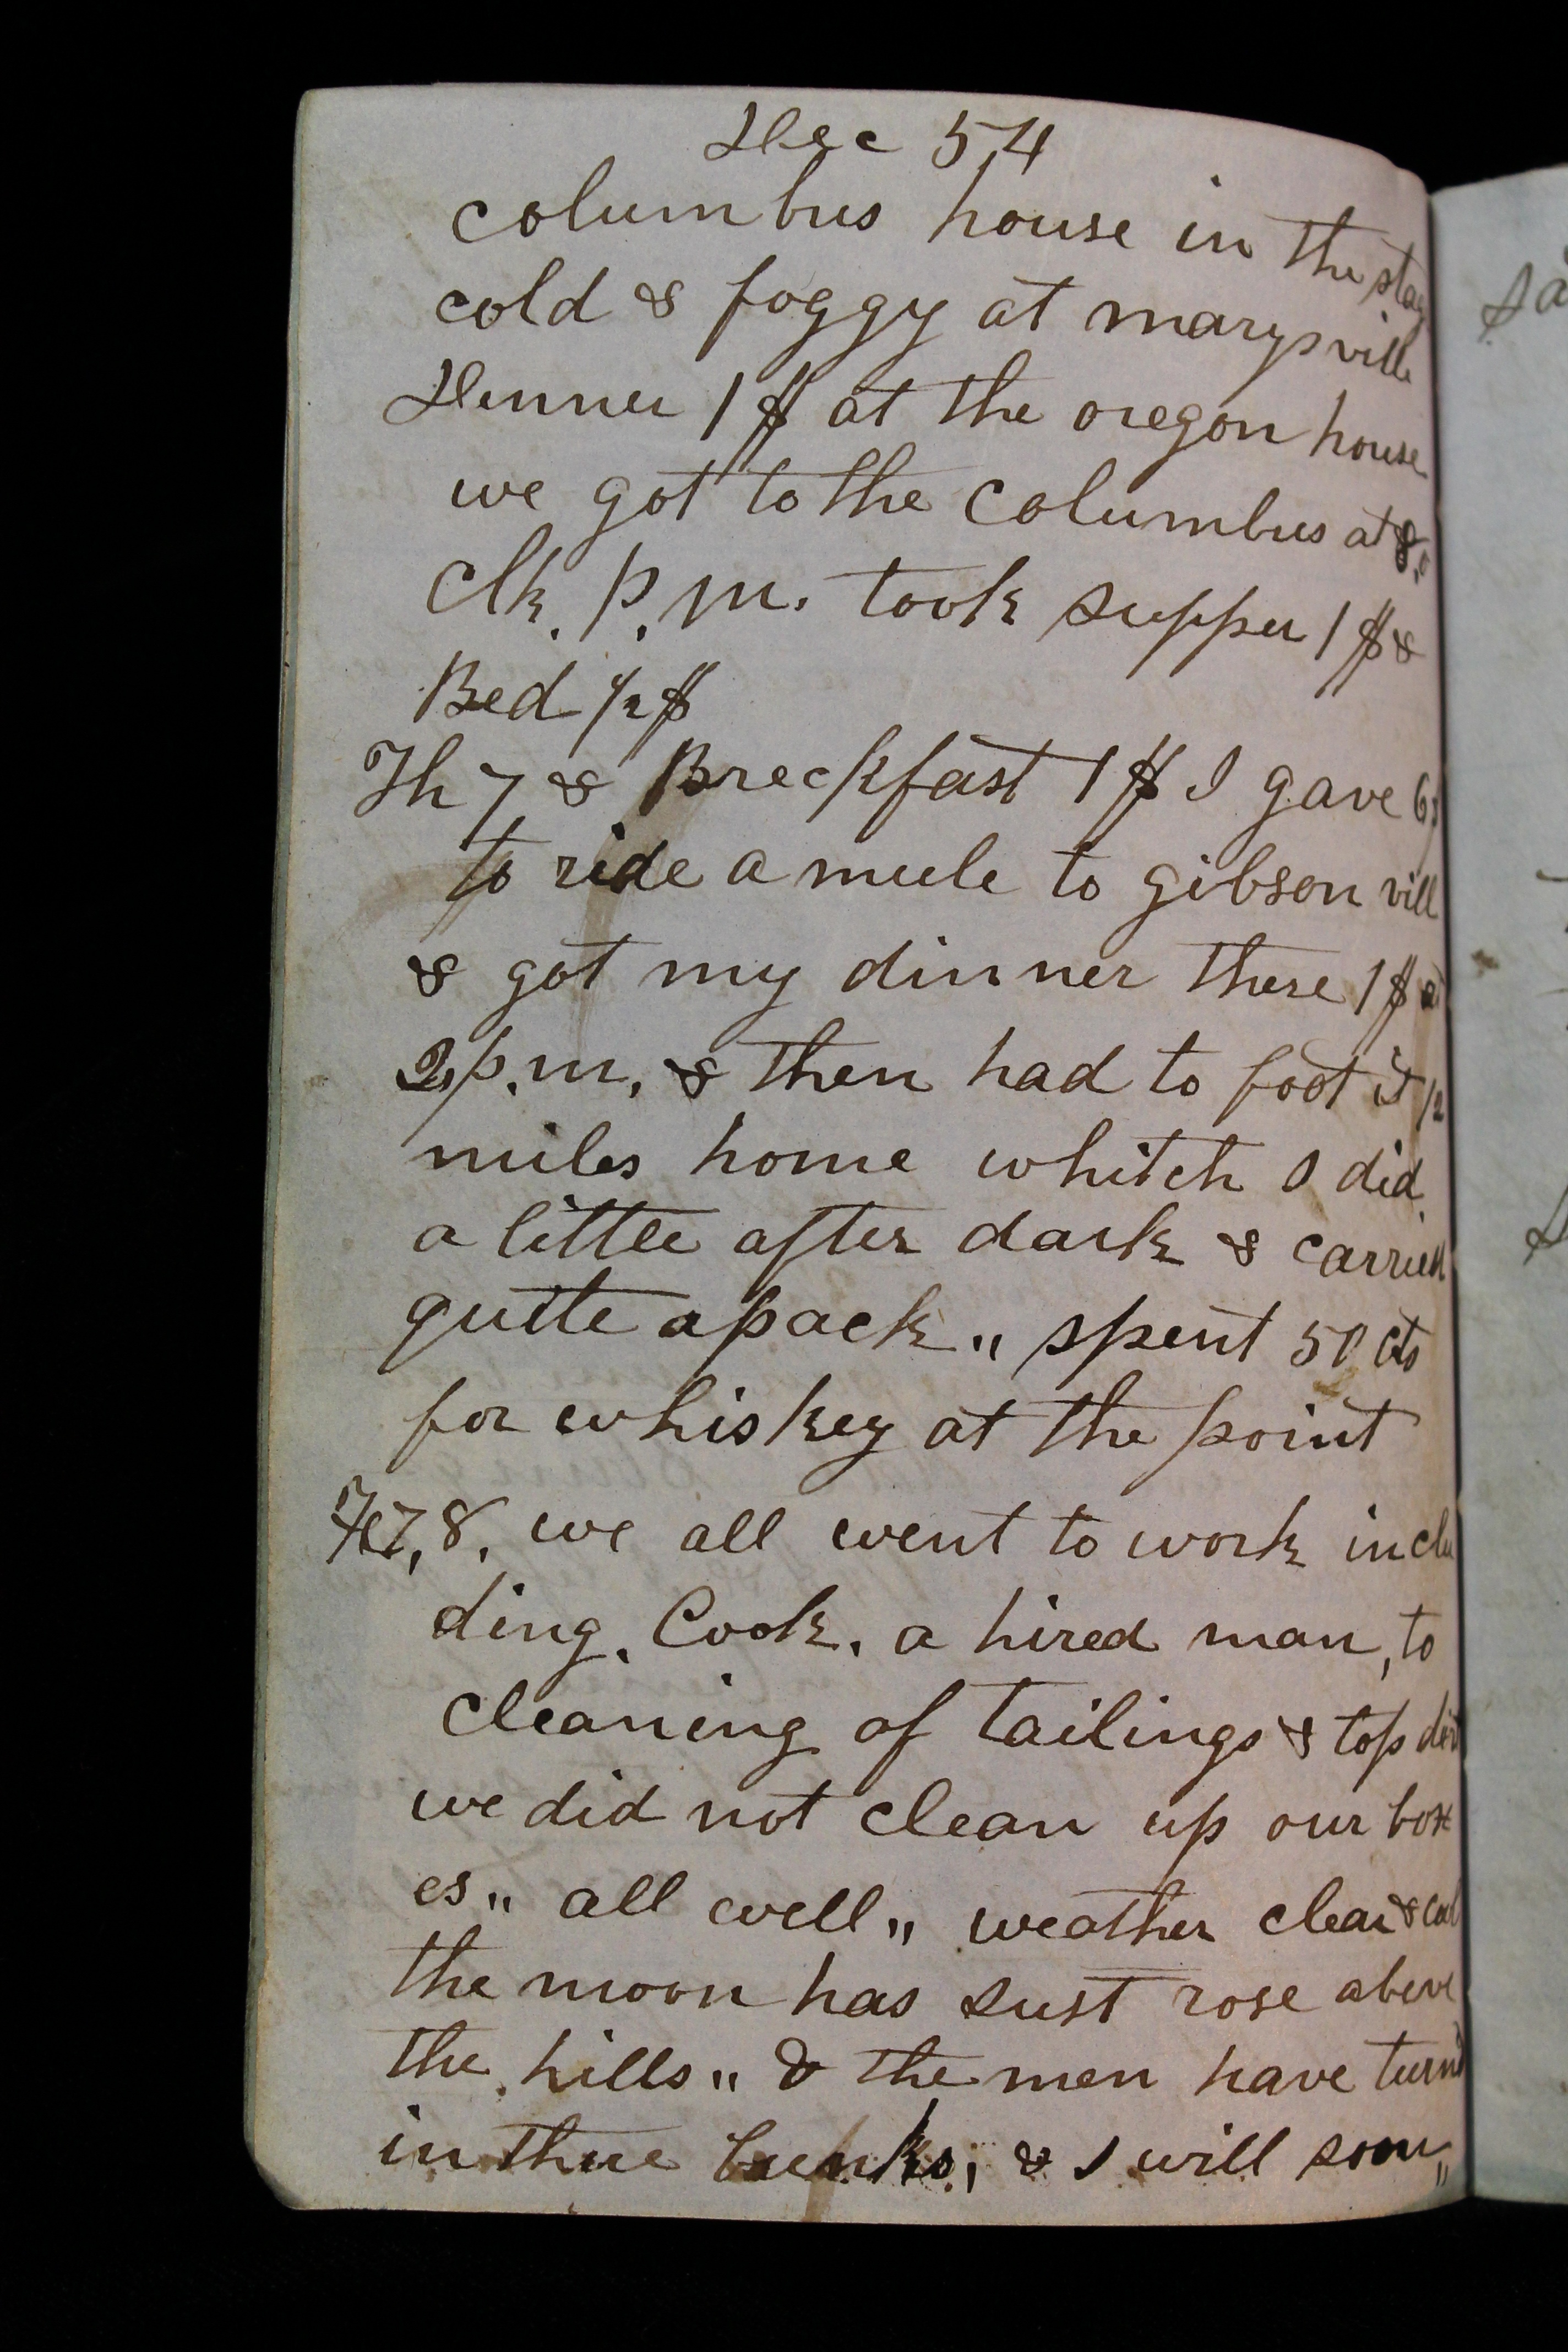 Dec 54
columbus house in the stag
cold & foggy at marysville
Denner 1 $ at the oregon house
we got to the Columbus at 8,o
Clk. P.M. took supper 1 $ &
Bed 1/2 $
Th 7 & Breckfast 1 $ I gave 6$
to ride a mule to gibson vill
& got my dinner there 1 $ at
2 p.m. & then had to foot it 12
miles home whitch I did
a little after dark & carried
quite a pack „ spent 50 cts
for whiskey at the point
8. we all went to work inclu
ding. Cook. a hired man, to
cleaning of tailings & top dirt
we did not clean up our box
es „ all well „ weather clear & cool
the moon has Just rose above
the hills „ & the men have turnd
in thire bunks; & I will soon „
Sa